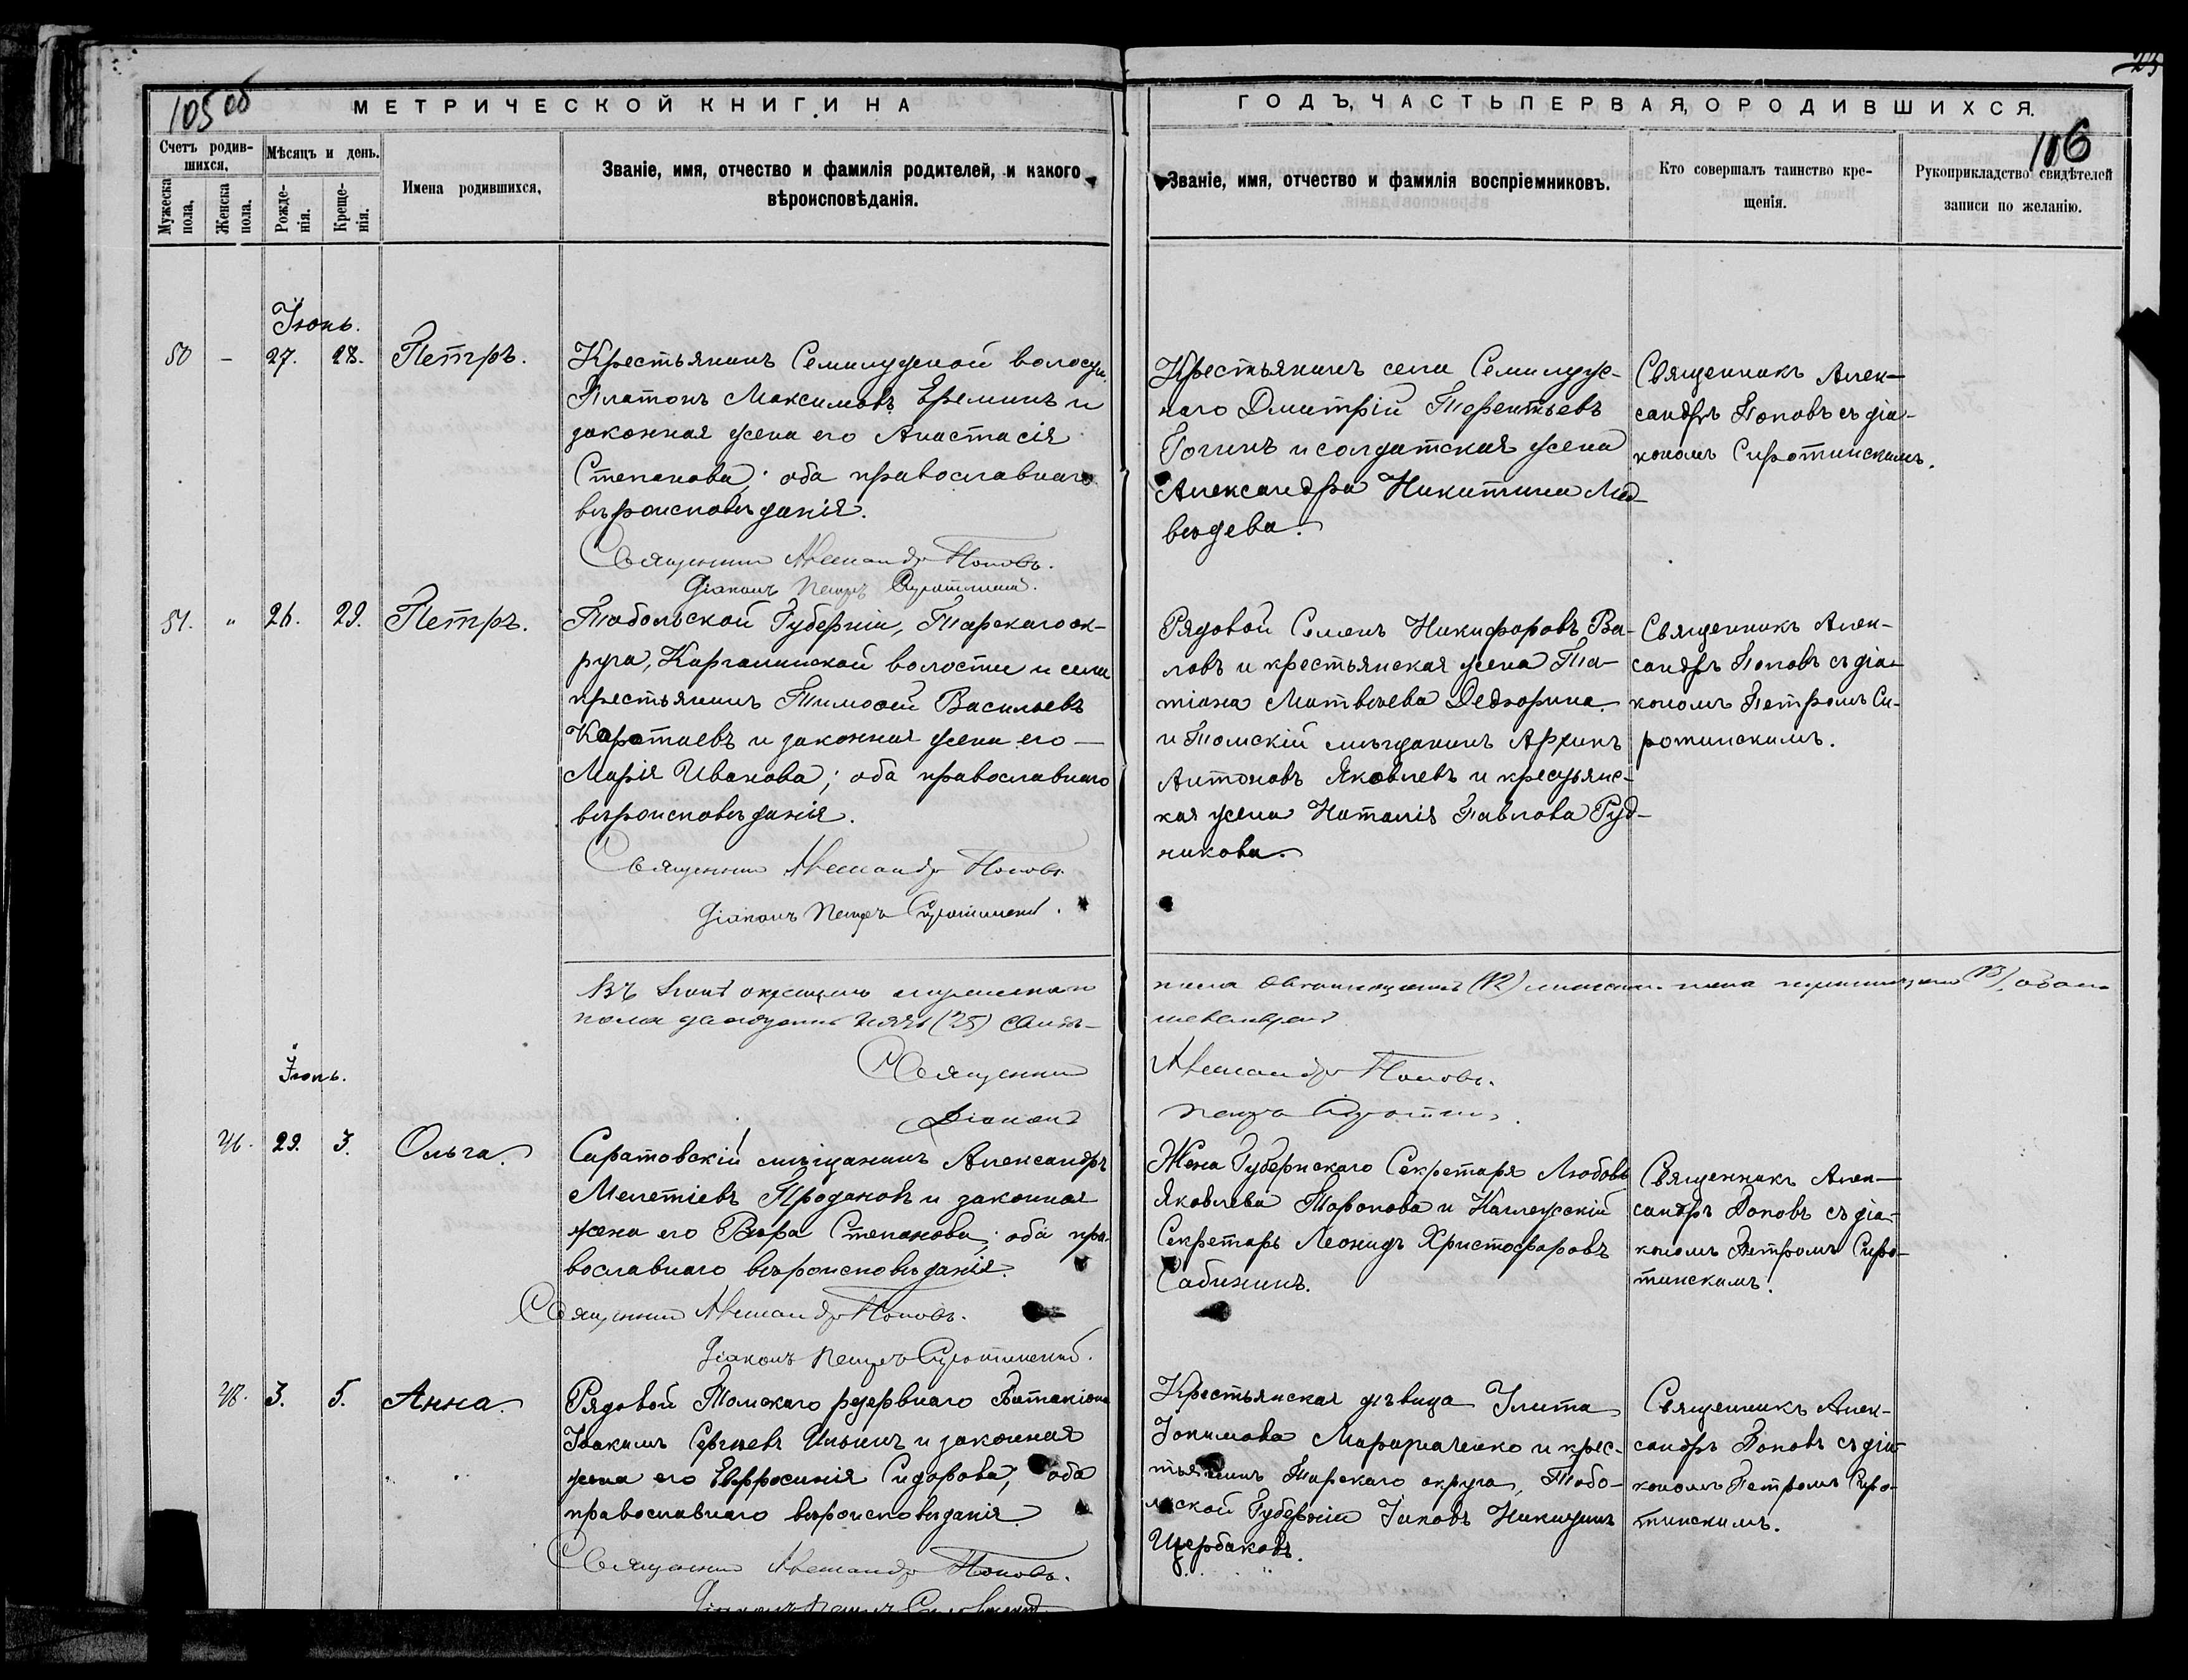 105 об
МЕТРИЧЕСКОЙ КНИГИ НА
ГОДЪ, ЧАСТЬ ПЕРВАЯ, О РОДИВШИХСЯ.
106
Счетъ родив-
шихся.
Мужеска пола.
Женска пола.
Мѣсяцъ и день.
Рожде-
нія.
Креще-
нія.
Имена родившихся.
Званіе, имя, отчество и фамилія родителей, и какого
вѣроисповѣданія.
Званіе, имя, отчество и фамилія воспріемниковъ.
Кто совершалъ таинство кре-
щенія.
Рукоприкладство свидѣтелей
записи по желанію.
Іюнь.
50 – 27. 28. Петръ.
Крестьянинъ Семилужной волости
Платонъ Максимовъ Ереминъ и
законная жена его Анастасія
Степанова; оба православнаго
вѣроисповѣданія.
Священникъ Александръ Поповъ.
Діаконъ Петръ Сиротинскій.
Крестьянинъ села Семилуж-
наго Дмитрій Терентьевъ
и солдатская жена
Александра Никитина Мед-
вѣдева.
Священникъ Алек-
сандръ Поповъ съ діа-
кономъ Сиротинскимъ.
51. " 26. 29. Петръ.
Тобольской Губерніи, Тарскаго ок-
руга, волости и села
крестьянинъ Тимофей Васильевъ
Каратаевъ и законная жена его –
Марія Иванова; оба православнаго
вѣроисповѣданія.
Священникъ Александръ Поповъ
Діаконъ Петръ Сиротинскій.
Рядовой Семенъ Никифоровъ Ва-
ловъ и крестьянская жена Та-
тіана Матвѣева Дедюрина
и Томскій мѣщанинъ
Антоновъ Яковлевъ и крестьянс-
кая жена Наталія Павлова Руд-
никова.
Священникъ Алек-
сандръ Поповъ съ діа-
кономъ Петромъ Си-
ротинскимъ.
Въ Іюнѣ мужеска
пола двадцать пять (25)
пола двѣнадцать (12) женска пола тринадцать (13),
Священникъ
Александръ Поповъ.
Діаконъ
Петръ
Іюнь.
46. 29. 3. Ольга.
Саратовскій мѣщанинъ Александръ
Мелетіевъ Продановъ и законная
жена его Вѣра Степанова; оба пра-
вославнаго вѣроисповѣданія.
Священникъ Александръ Поповъ.
Діаконъ Петръ Сиротинскій.
Жена Губернскаго Секретаря Любовь
Яковлева Торопова и Коллежскій
Секретарь Леонидъ Христофоровъ
Сабининъ.
Священникъ Алек-
сандръ Поповъ съ діа-
кономъ Петромъ Сиро-
тинскимъ.
3. 5. Анна.
Рядовой Томскаго резервнаго Баталіона
Іоакимъ Сергѣевъ Ильинъ и законная
жена его Евфросинія Сидорова; оба
православнаго вѣроисповѣданія.
Священникъ Александръ Поповъ.
Діаконъ Петръ
Крестьянская дѣвица Улита
и крес-
тьянинъ Тарскаго округа, Тобо-
льской Губерніи Іаковъ Никитинъ
Щербаковъ.
Священникъ Алек-
сандръ Поповъ съ діа-
кономъ Петромъ Сиро-
тинскимъ.